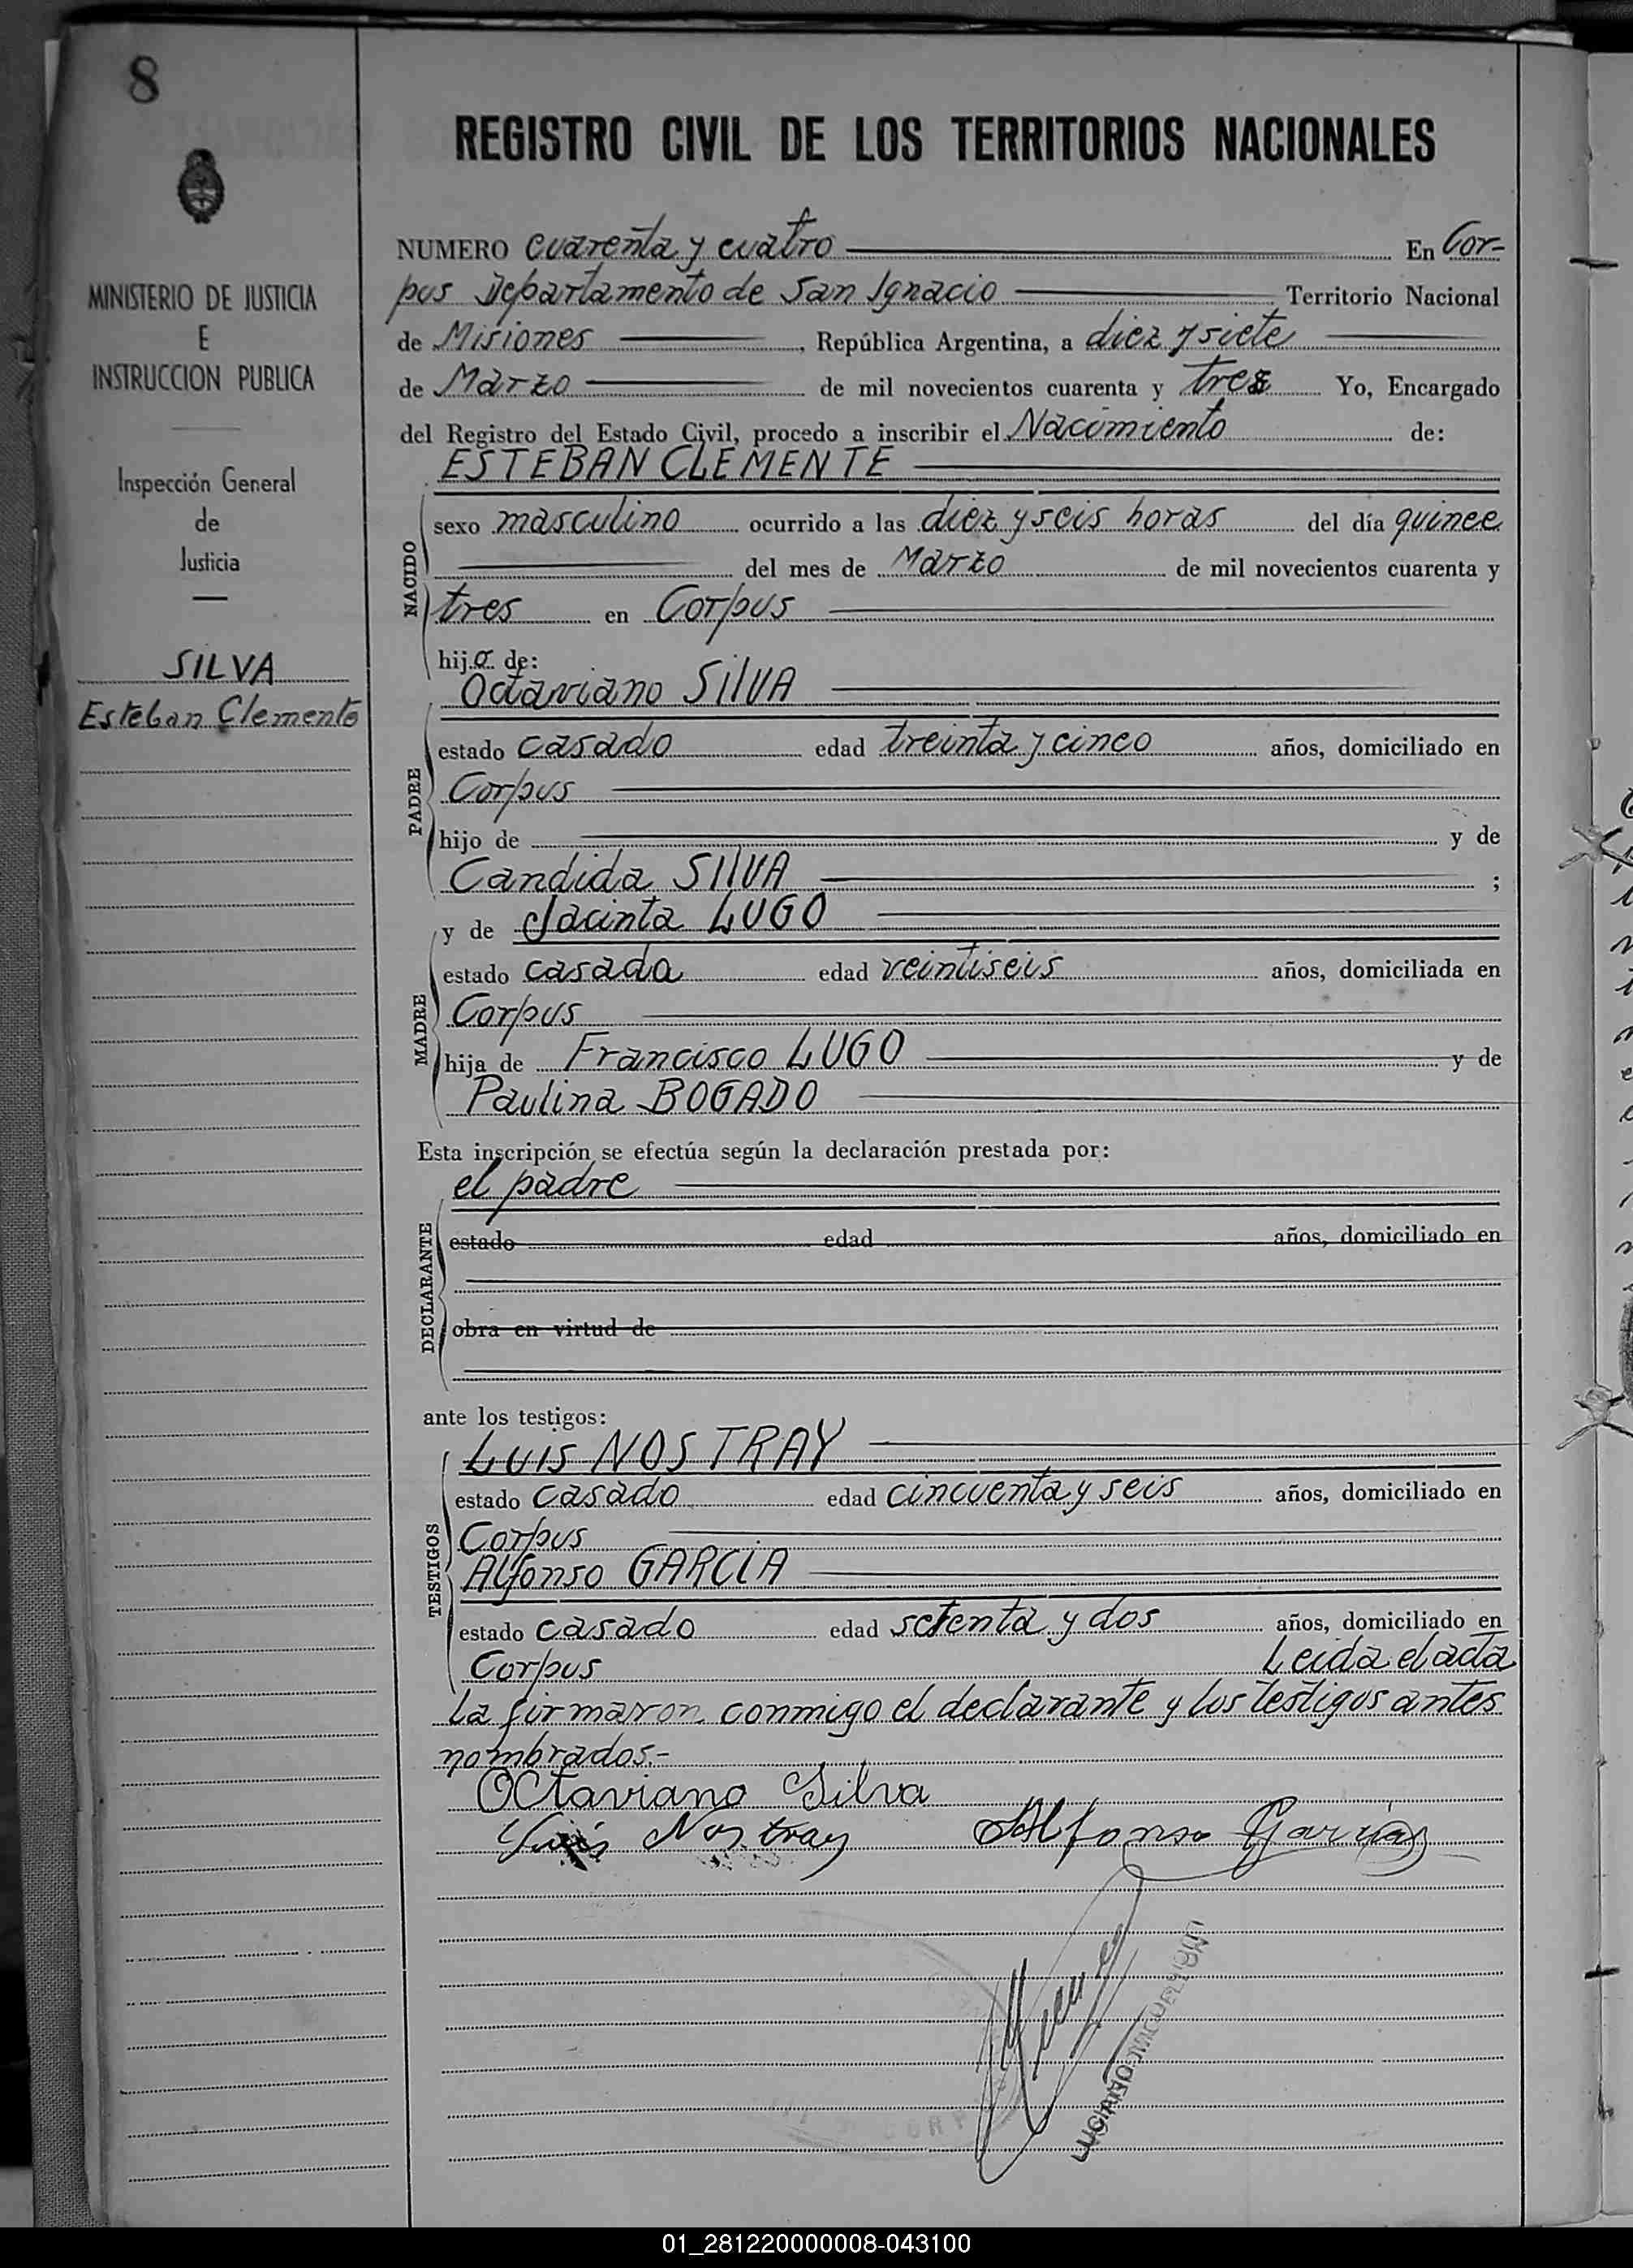 8
REGISTRO CIVIL DE LOS TERRITORIOS NACIONALES
MINISTERIO DE JUSTICIA
E
INSTRUCCION PUBLICA
Inspección General
de
Justicia
SILVA
Esteban Clemente
NUMERO cuarenta y cuatro En Cor-
pus Departamento de San Ignacio Territorio Nacional
de Misiones, República Argentina, a diez y siete
de Marzo de mil novecientos cuarenta y tres Yo, Encargado
del Registro del Estado Civil, procedo a inscribir el Nacimiento de:
ESTEBAN CLEMENTE
NACIDO
sexo masculino ocurrido a las diez y seis horas del día quince
del mes de Marzo de mil novecientos cuarenta y
tres en Corpus
hijo de:
Octaviano SILVA
PADRE
estado casado edad treinta y cinco años, domiciliado en
Corpus
hijo de y de
Candida SILVA ;
y de Jacinta LUGO
MADRE
estado casada edad veintiseis años, domiciliada en
Corpus
hija de Francisco LUGO y de
Paulina BOGADO
Esta inscripción se efectúa según la declaración prestada por:
el padre
DECLARANTE
estado edad años, domiciliado en
obra en virtud de
ante los testigos:
LUIS NOSTRAY
TESTIGOS
estado casado edad cincuenta y seis años, domiciliado en
Corpus
Alfonso GARCIA
estado casado edad setenta y dos años, domiciliado en
Corpus Leida el acta
la firmaron conmigo el declarante y los testigos antes
nombrados.-
Octaviano Silva
Luis Nostray Alfonso Garcia
LUCIANO
01_281220000008-043100